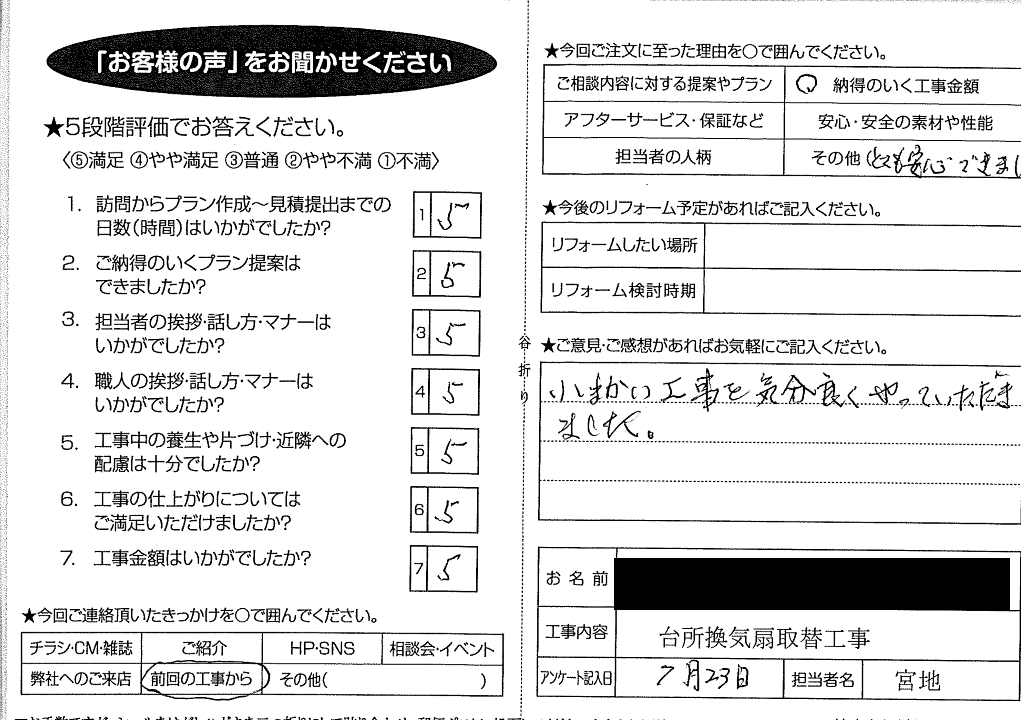 「お客様の声」をお聞かせください
★5段階評価でお答えください。
〈⑤満足 ④やや満足 ③普通 ②やや不満 ①不満〉
1. 訪問からプラン作成～見積提出までの
日数(時間)はいかがでしたか?
1 5
2. ご納得のいくプラン提案は
できましたか?
2 5
3. 担当者の挨拶・話し方・マナーは
いかがでしたか?
3 5
4. 職人の挨拶・話し方・マナーは
いかがでしたか?
4 5
5. 工事中の養生や片づけ・近隣への
配慮は十分でしたか?
5 5
6. 工事の仕上がりについては
ご満足いただけましたか?
6 5
7. 工事金額はいかがでしたか?
7 5
★今回ご連絡頂いたきっかけを〇で囲んでください。
チラシ・CM・雑誌 ご紹介 HP・SNS 相談会・イベント
弊社へのご来店 前回の工事から その他( )
谷折り
★今回ご注文に至った理由を〇で囲んでください。
ご相談内容に対する提案やプラン 〇 納得のいく工事金額
アフターサービス・保証など 安心・安全の素材や性能
担当者の人柄 その他(とても安心できまし
★今後のリフォーム予定があればご記入ください。
リフォームしたい場所
リフォーム検討時期
★ご意見・ご感想があればお気軽にご記入ください。
小まかい工事を気分良くやっていただき
ました。
お名前
工事内容 台所換気扇取替工事
アンケート記入日 7月23日 担当者名 宮地